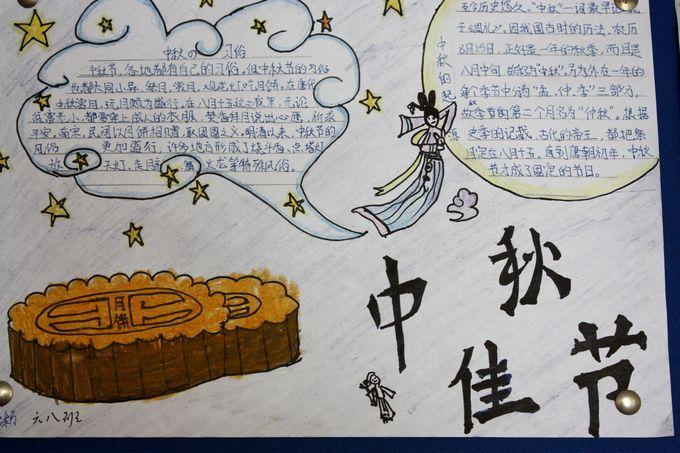 中秋の 习俗
中秋节,各地都有自己的习俗,但中秋节的习俗
也都大同小异,祭月、赏月、观花灯、吃月饼,在唐代
中秋赏月、玩月颇为盛行,在八月十五这之夜里,无论
贫富老小,都要穿上成人的衣服,焚香拜月说出心愿,祈求
平安。南宋,民间以月饼相赠,取团圆之义。明清以来,中秋节的
风俗 更加盛行,许多地方形成了烧斗香、点塔灯
放 天灯、走月 火龙等特殊风俗。
中秋的起源
至今历史悠久。“中秋”一词最早记载
于《周礼》。因我国古时的历法,农历
8月15日,正好是一年的秋季,而且是
八月中旬,故称为“中秋”。另为外在一年的
每个季节中分为“孟、仲、季”三部分,
故季节的第二个月名为“仲秋”。根据
史事的记载,古代的帝王,都把祭
月定在八月十五。直到唐朝初年,中秋
节才成了固定的节日。
月饼
中秋
佳节
六八班